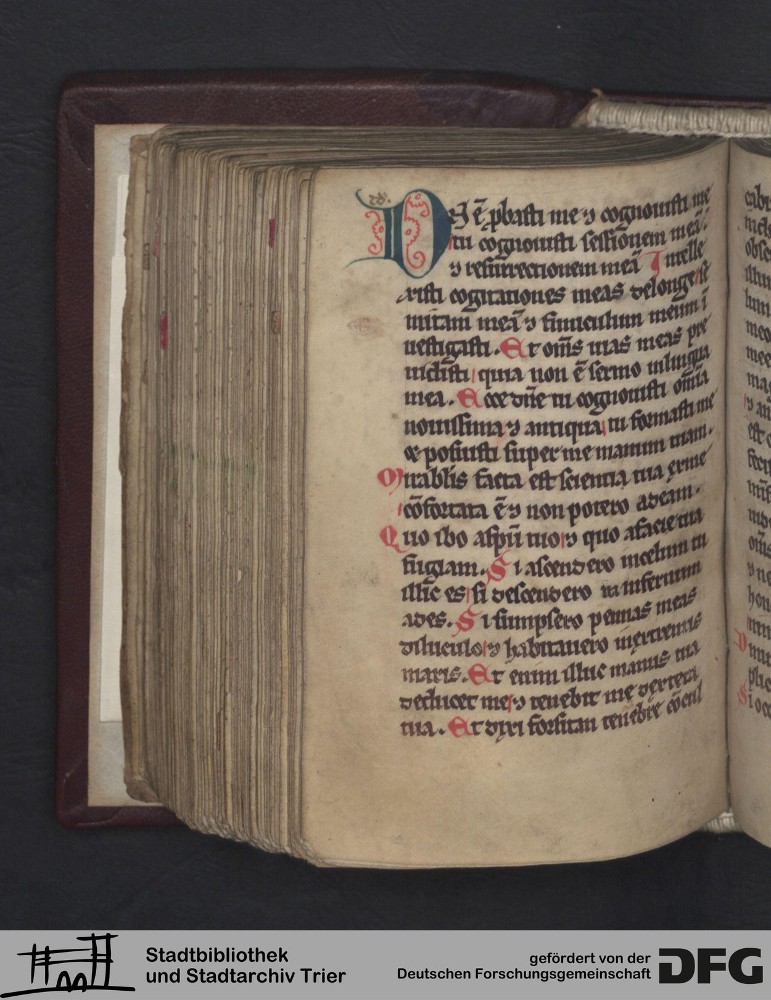 Ds ē ꝓbasti me ⁊ cognouisti me
tu cognouisti sessionem meā
⁊ resurrectionem meā Intelle
xisti cogitationes meas de longe se
mitam meā ⁊ funiculum meum ī
uestigasti. Et om̄s uias meas pre
uidisti quia non ē sermo in lingua
mea. Ecce dn̄e tu cognouisti om̄ia
nouissima ⁊ antiqua tu formasti me
⁊ posuisti super me manum tuam.
Mirabilis facta est scientia tua ex me
cōfortata ē ⁊ non potero ad eam.
Quo ibo a sp̄u tuo ⁊ quo a facie tua
fugiam. Si ascendero in celum tu
illic es si descendero in infernum
ades. Si sumpsero pennas meas
diluculo ⁊ habitauero in extremis
maris. Et enim illuc manus tua
deducet me ⁊ tenebit me dextera
tua. Et dixi forsitan tenebre cōcul
Stadtbibliothek
und Stadtarchiv Trier
gefördert von der
Deutschen Forschungsgemeinschaft
DFG